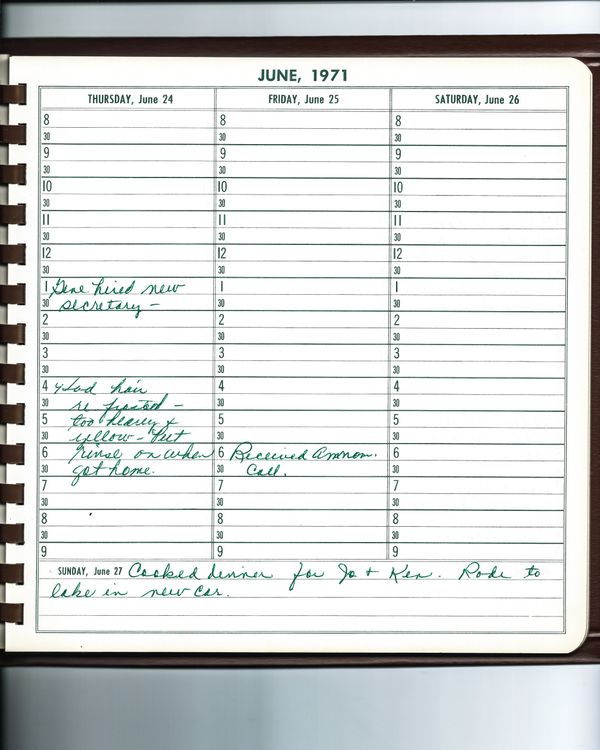 JUNE, 1971
THURSDAY, June 24
FRIDAY, June 25
SATURDAY, June 26
8 8 8
30 30 30
9 9 9
30 30 30
10 10 10
30 30 30
11 11 11
30 30 30
12 12 12
30 30 30
1 Gene hired new 1 1
30 secretary - 30 30
2 2 2
30 30 30
3 3 3
30 30 30
4 Had hair 4 4
30 re frosted - 30 30
5 too heavy & 5 5
30 yellow - Put 30 30
6 rinse on when 6 Received 6
30 got home. 30 Call. 30
7 7 7
30 30 30
8 8 8
30 30 30
9 9 9
SUNDAY, June 27 Cooked dinner for Jo + Ken. Rode to
lake in new car.